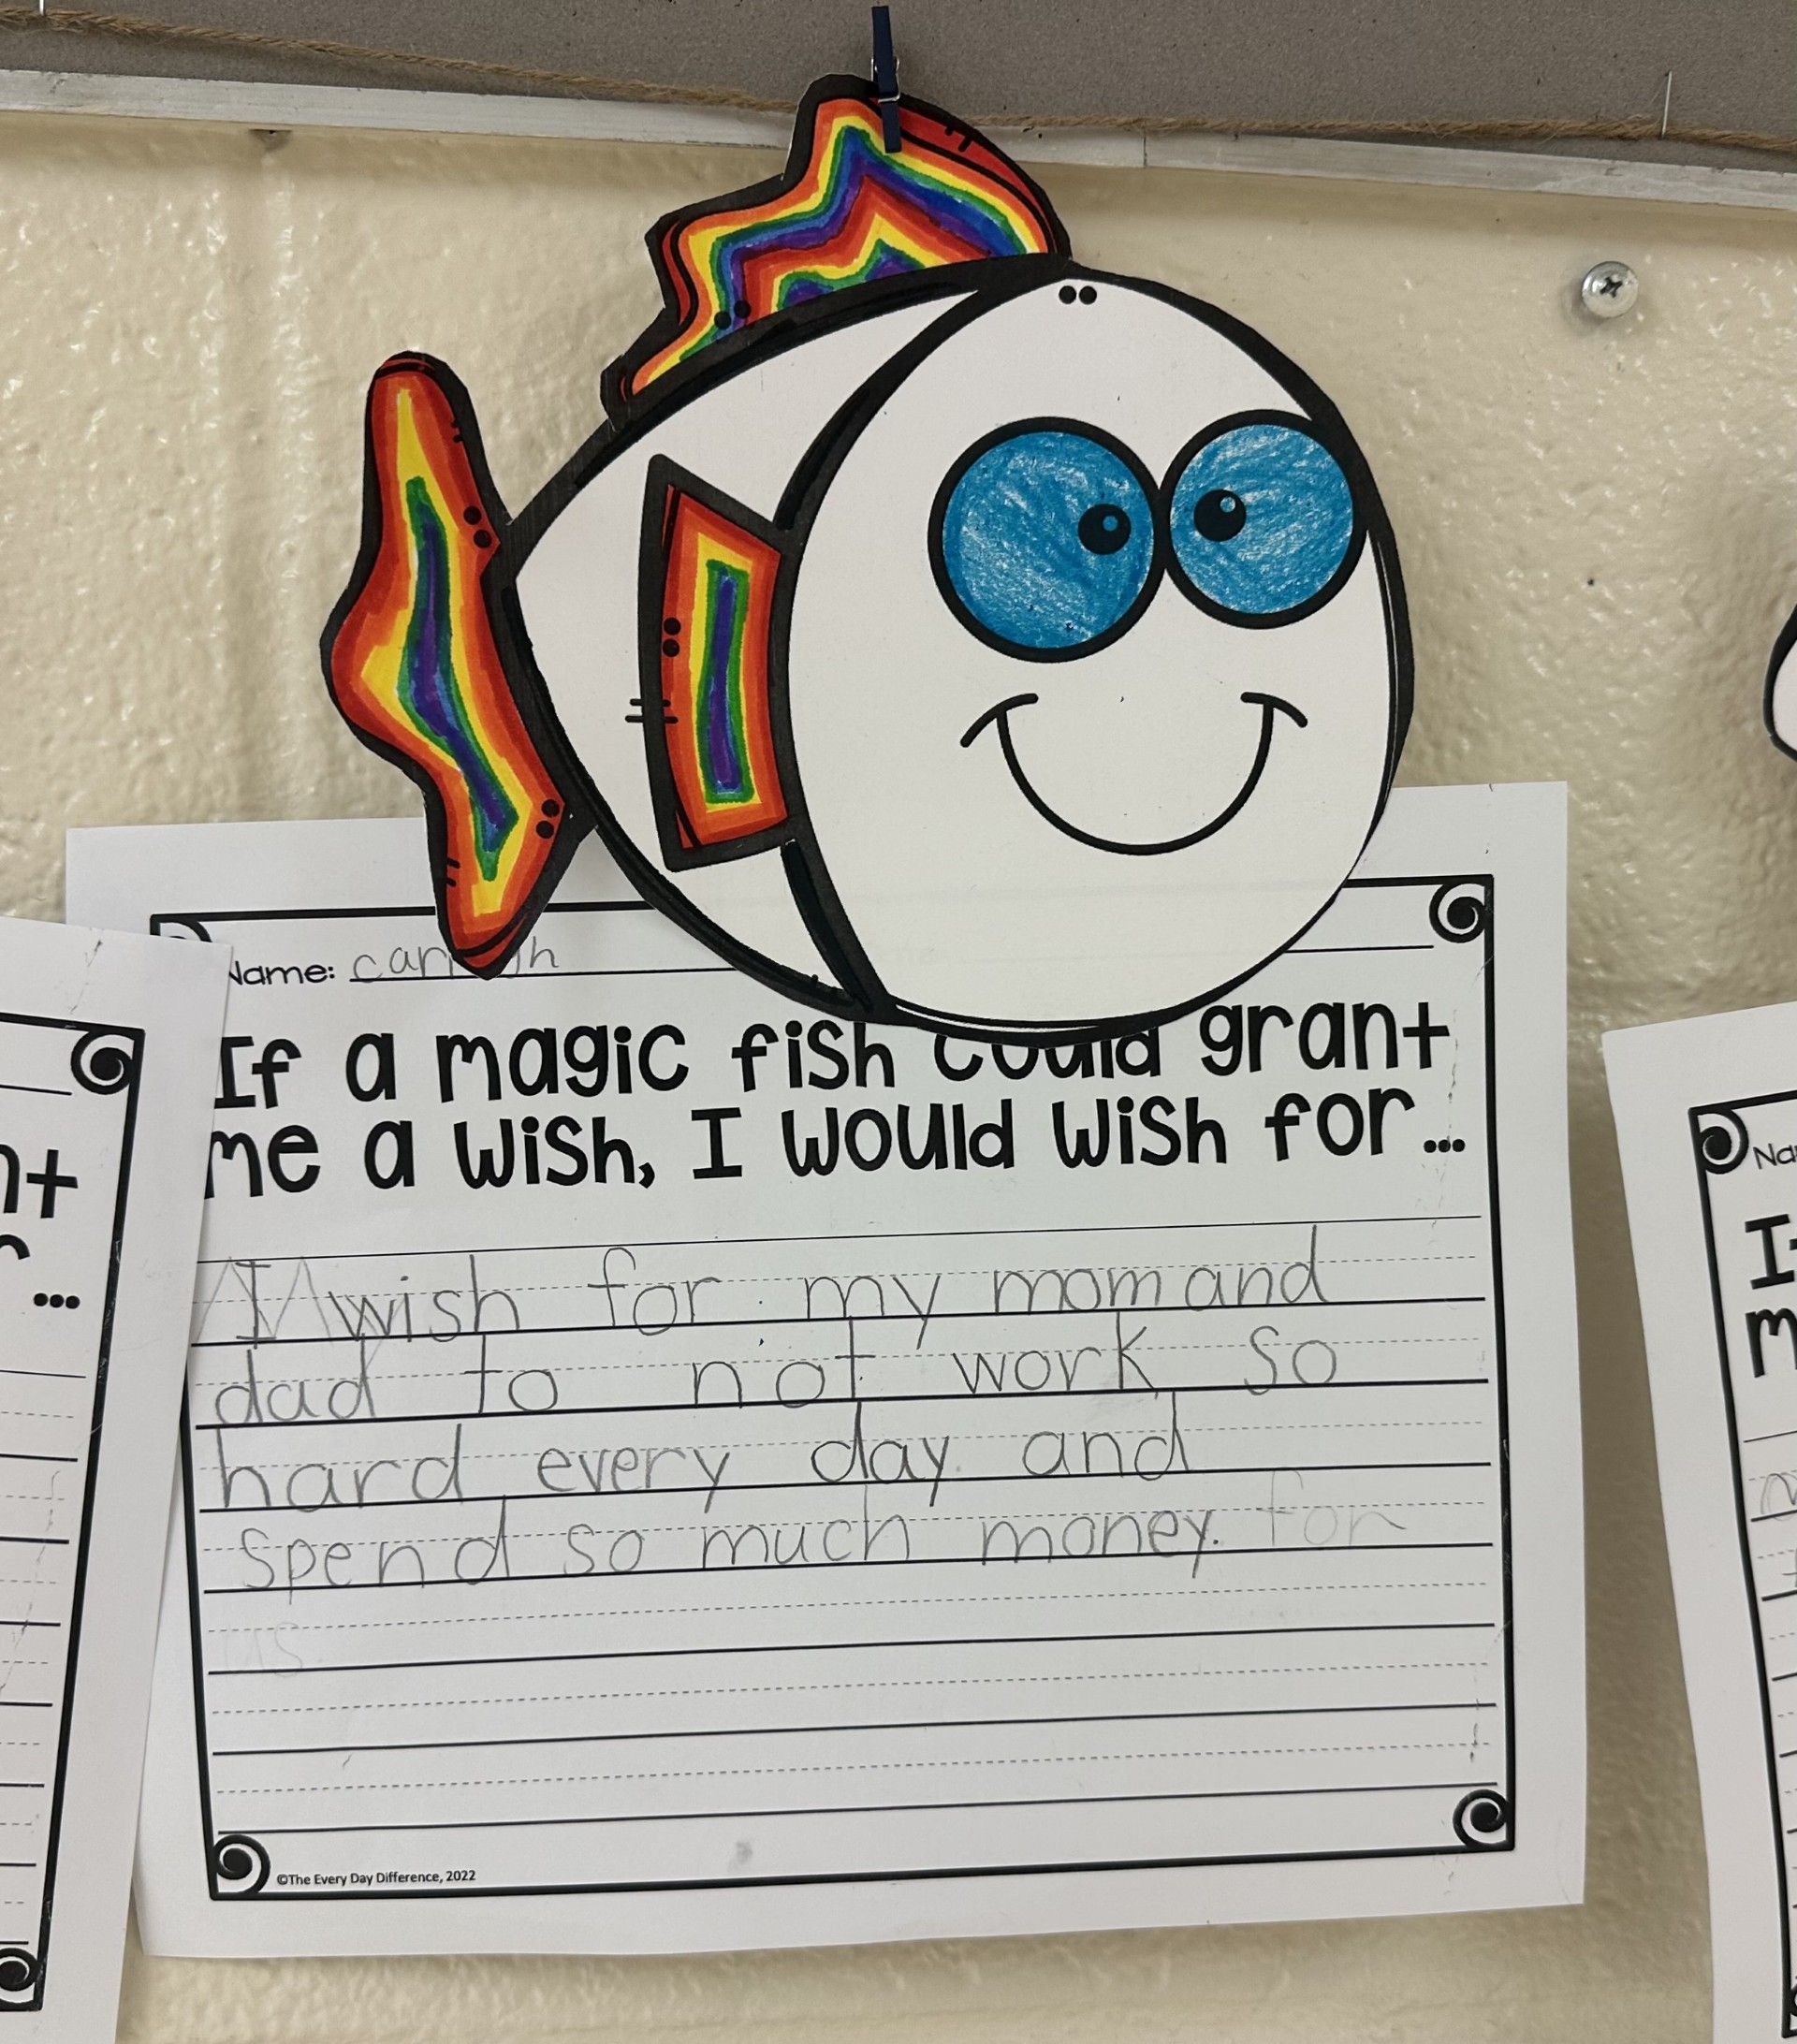 Name:
If a magic fish could grant
me a wish, I would wish for...
I wish for my mom and
dad to not work so
hard every day and
spend so much money. for
us.
©The Every Day Difference, 2022